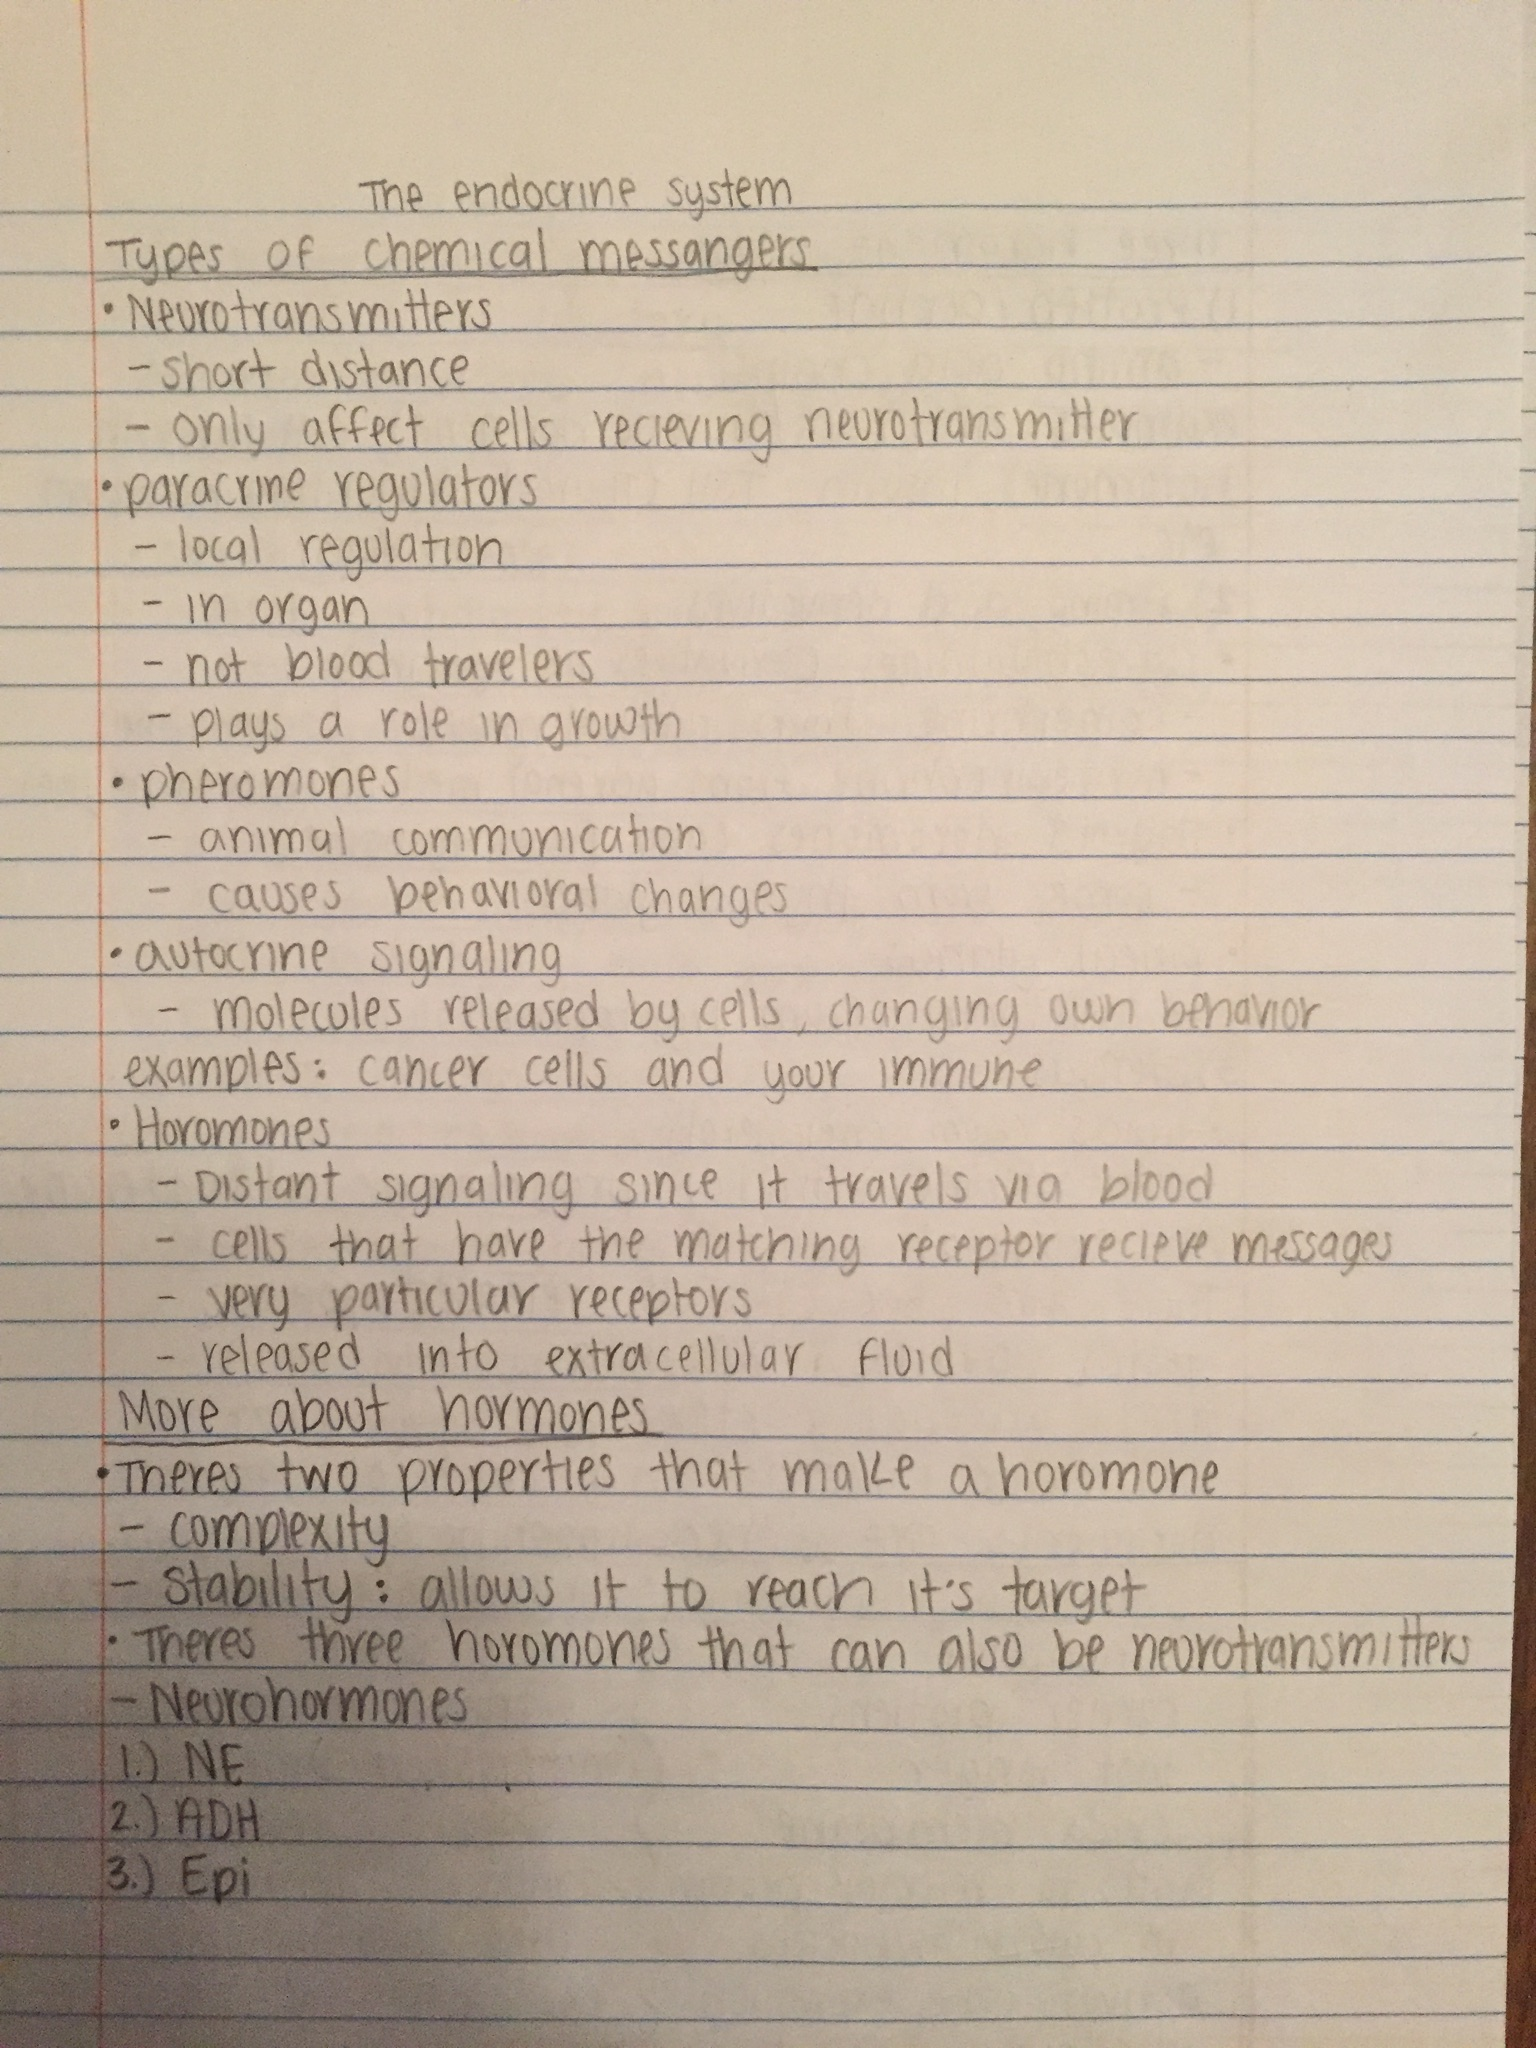 The endocrine system
Types of chemical messangers
• Neurotransmitters
- short distance
- only affect cells recieving neurotransmitter
• paracrine regulators
- local regulation
- in organ
- not blood travelers
- plays a role in growth
• pheromones
- animal communication
- causes behavioral changes
• autocrine signaling
- molecules released by cells, changing own behavior
examples: cancer cells and your immune
• Horomones
- Distant signaling since it travels via blood
- cells that have the matching receptor recieve messages
- very particular receptors
- released into extracellular fluid
More about hormones
• Theres two properties that make a horomone
- complexity
- Stability: allows it to reach it's target
• Theres three horomones that can also be neurotransmitters
- Neurohormones
1.) NE
2.) ADH
3.) Epi